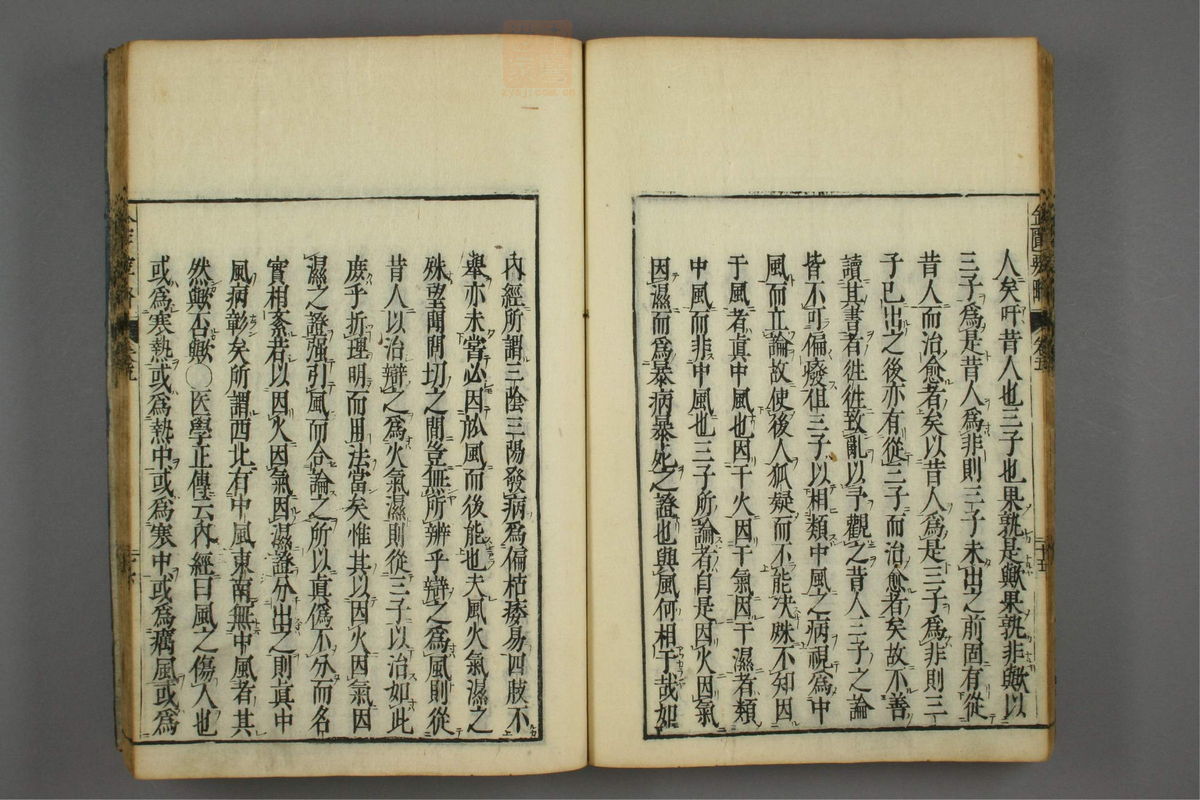 人矣吁昔人也三子也果孰是歟果孰非歟以
三子爲是昔人爲非則三子未出之前固有從
昔人而治愈者矣以昔人爲是三子爲非則三
子已出之後亦有從三子而治愈者矣故不善
讀其書者徃徃致亂以予觀之昔人三子之論
皆不可偏癈徂三子以相類中風之病視爲中
風而立論故使後人狐疑而不能决殊不知因
于風者眞中風也因于火因于氣因于濕者類
中風而非中風也三子所論者自是因火因氣
因濕而爲暴病暴死之證也與風何相干哉如
內經所謂三陰三陽發病爲偏枯痿易四肢不
舉亦未嘗必因於風而後能也夫風火氣濕之
殊望聞問切之間豈無所辨乎辯之爲風則從
昔人以治辯之爲火氣濕則從三子以治如此
庶乎折理明而用法當矣惟其以因火因氣因
濕之證强引風而合論之所以真僞不分而名
實相紊若以因火因氣因濕證分出之則眞中
風病彰矣所謂西北有中風東南無中風者其
然歟否歟〇医學正傳云內經曰風之傷人也
或爲寒熱或爲熱中或爲寒中或爲癘風或爲